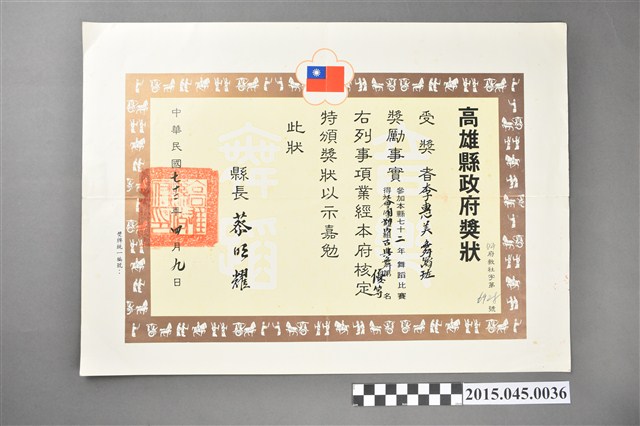 高雄縣政府獎狀
府教社字第 6928 號
受獎者李惠美舞蹈班
獎勵事實
參加本縣七十二年舞蹈比賽
優等 名
右列事項業經本府核定
特頒獎狀以示嘉勉
此狀
縣長 蔡明耀
中華民國七十三年四月九日
獎牌統一編號：
2015.045.0036